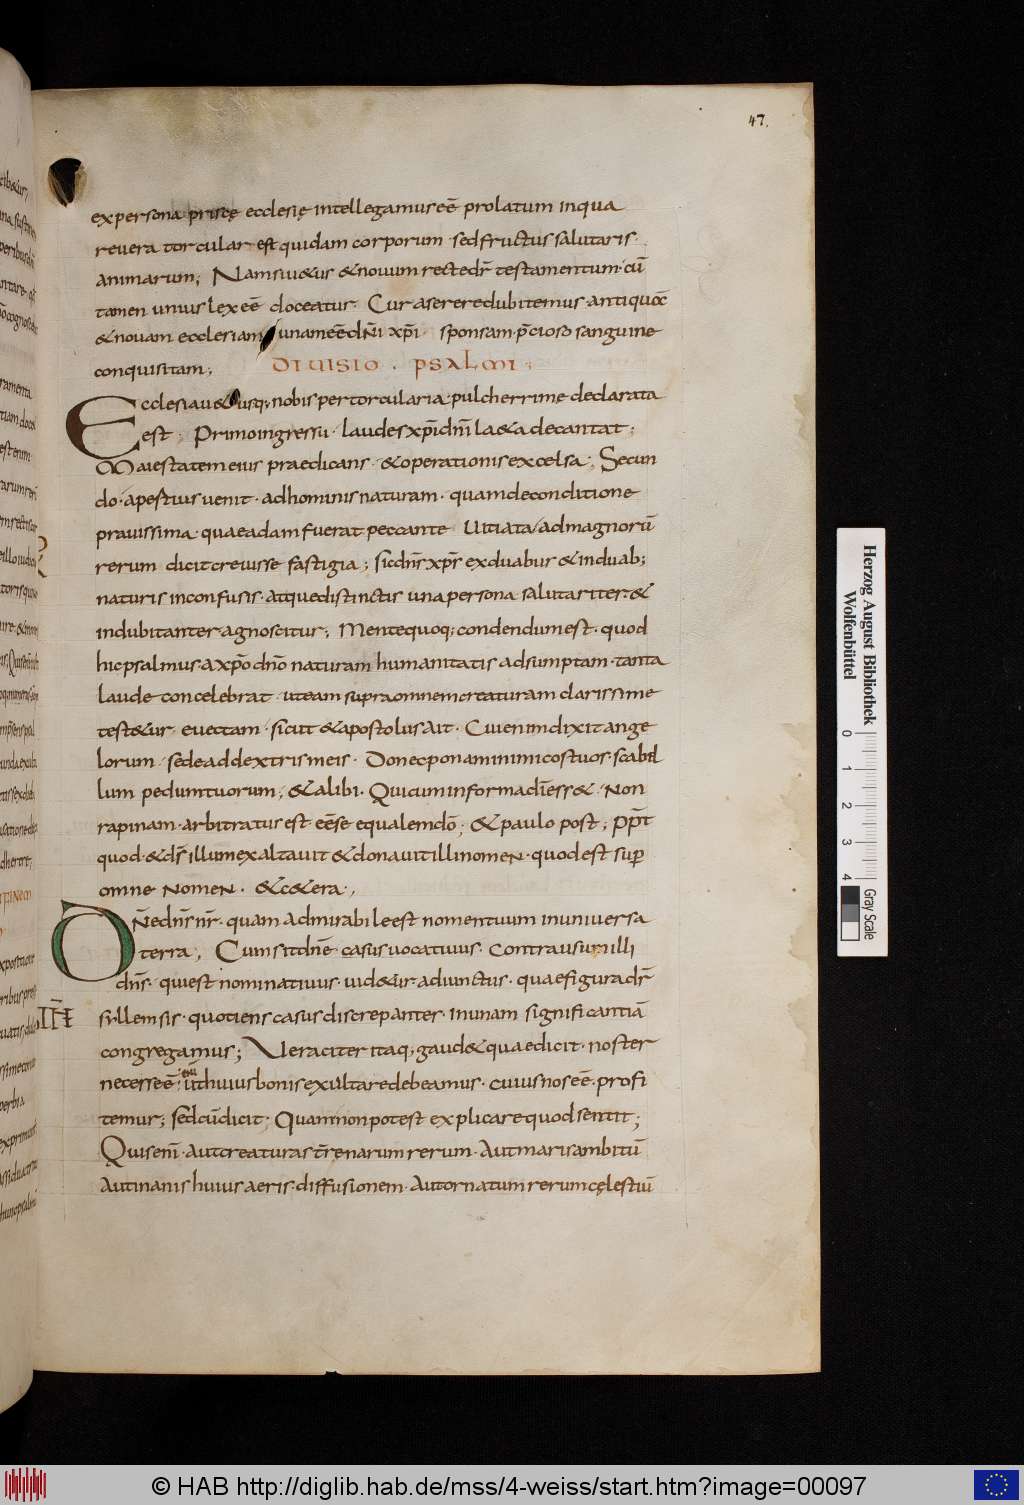 47.
ex persona priscę ecclesię intellegamus eē prolatum in qua
revera torcular est quidam corporum · sed fructus salutaris ·
animarum; Nam si u&us & novum recte dr̄ testamentum · cū
tamen unius lex eē doceatur · Cur aserere dubitemus antiquā
& novam ecclesiam unam eē dn̄i xp̄i · sponsam · p̄cioso sanguine
conquisitam;
DIVISIO · PSALMI ·
Ecclesia u&usq; nobis per torcularia · pulcherrime declarata
est; Primo ingressu · laudes xp̄i dn̄i la&a decantat;
Maiestatem eius praedicans · & operationis excelsa; Secun
do · apestius venit · ad hominis naturam · quam de conditione
pravissima · quae adam fuerat peccante Vitiata / ad magnorū
rerum dicit crevisse fastigia; sic dn̄s xp̄s ex duabus & in duab;
naturis inconfusis · atque distinctis una persona salutariter · &
indubitanter agnoscitur; Mente quoq; condendum est · quod
hic psalmus · a xp̄o dn̄o naturam humanitatis adsumptam · tanta
laude concelebrat · ut eam supra omnem creaturam clarissime
test&ur evectam · sicut & apostolus ait · Cui enim dixit ange
lorum · sede ad dextris meis · Donec ponam inimicos tuos · scabil
lum pedum tuorum; & alibi · Qui cum in forma dī ess& · Non
rapinam · arbitratus est eēse equalem dō; & paulo post; pp̄t
quod · & ds̄ illum exaltavit & donavit illi nomen · quod est sup̄
omne nomen · & c&era;
DN̄e dn̄s nr̄ · quam admirabile est nomen tuum in universa
terra; Cum sit dn̄e casus vocativus · contra usum illi
dn̄s · qui est nominativus · vid&ur adiunctus · quae figura dr̄
syllemsis · quotiens casus discrepanter · in unam significantiā
congregamus; Veraciter itaq; gaud& quae dicit · noster
necesse ē · enī ut huius bonis exultare debeamus · cuius nos eē · profi
temur; sed cū dicit; Quam non potest explicare quod sentit;
Quis enī · aut creaturas t̄renarum rerum · Aut maris ambitū
Aut inanis huius aeris · diffusionem · Aut ornatum rerum cęlestiū
Herzog August Bibliothek
Wolfenbüttel
0 1 2 3 4
Gray Scale
© HAB http://diglib.hab.de/mss/4-weiss/start.htm?image=00097